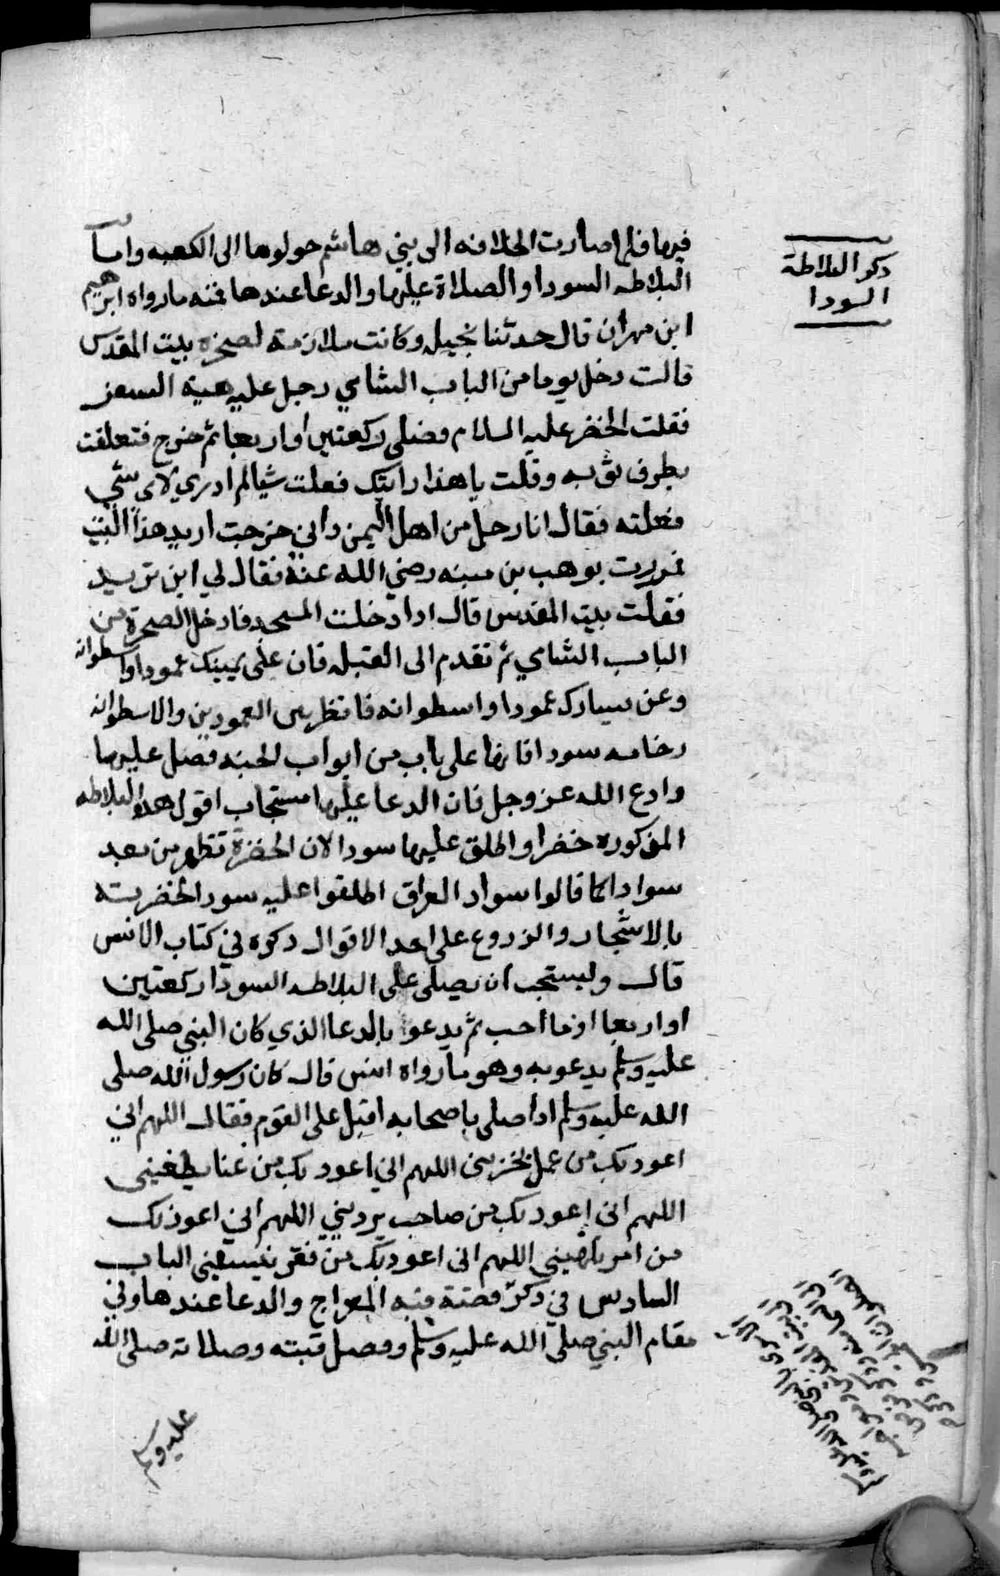 ذكر البلاطة
السودا
فيها فلما صارت الخلافه الى بني هاشم حولوها الى الكعبه واما
البلاطه السودا والصلاة عليها والدعا عندها فنه ما رواه ابراهيم
ابن مهران قال حدثنا بجيله وكانت ملازمة لصخره بيت المقدس
قالت دخل يوما من الباب الشامي رجل عليه هية السفر
فقلت الخضر عليه السلام فصلى ركعتين او اربعا ثم خرج فتعلقت
بطرف ثوبه وقلت يا هذا رايتك فعلت شيا لم ادري لاى شي
فعلته فقال انا رجل من اهل اليمن واني خرجت اريد هذا البيت
فمررت بوهب بن منبه رضي الله عنه فقال لي اين تريد
فقلت بيت المقدس قال اذا دخلت المسجد فادخل الصخرة من
الباب الشامي ثم تقدم الى القبله فان على يمينك عمودا واسطوانه
وعن يسارك عمودا واسطوانه فانظر بين العمودين والاسطوانه
رخامه سودا فانها على باب من ابواب الجنه فصل عليها
وادع الله عز وجل فان الدعا عليها مستجاب اقول هذه البلاطه
المذكوره خضرا واطلق عليها سودا لان الخضرة تظهر من بعد
سوادا كما قالوا سواد العراق اطلقوا عليه سودا لخضرته
بالاشجار والزروع على احد الاقوال ذكره في كتاب الانس
قال ويستحب ان يصلى على البلاطه السودا ركعتين
او اربعا او ما احب ثم يدعو بالدعا الذي كان النبي صلى الله
عليه وسلم يدعو به وهو ما رواه انس قال كان رسول الله صلى
الله عليه وسلم اذا صلى باصحابه اقبل على القوم فقال اللهم اني
اعوذ بك من عمل يخزيني اللهم اني اعوذ بك من غنا يطغيني
اللهم اني اعوذ بك من صاحب يرديني اللهم اني اعوذ بك
من امر يلهيني اللهم اني اعوذ بك من فقر ينسيني الباب
السادس في ذكر قصة قبه المعراج والدعا عندها وفي
مقام النبي صلى الله عليه وسلم وفضل قبته وصلاته صلى الله
عليه وسلم